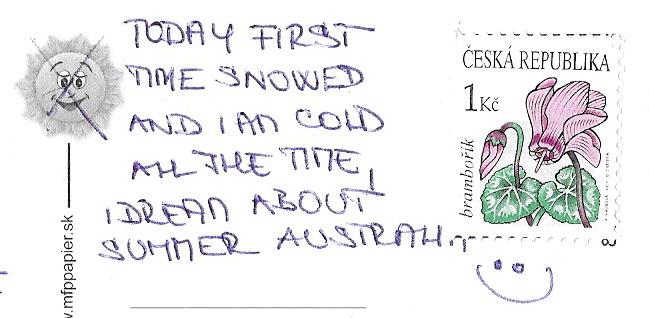 TODAY FIRST
TIME SNOWED
AND I AM COLD
ALL THE TIME,
I DREAM ABOUT
SUMMER AUSTRALI..
ČESKÁ REPUBLIKA
1 Kč
brambořík
www.mfppapier.sk